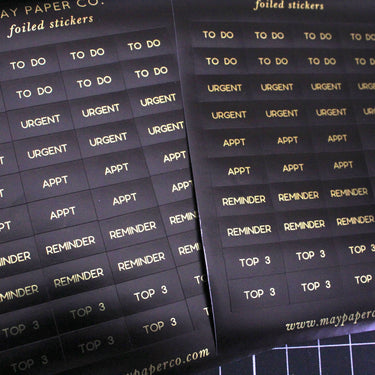 AY PAPER CO.
foiled stickers
TO DO TO DO
TO DO TO DO TO DO
URGENT URGENT URGENT
URGENT URGENT URGENT
APPT APPT APPT
APPT APPT
REMINDER REMINDER REMINDER
REMINDER REMINDER REMINDER
TOP 3 TOP 3 TOP 3
TOP 3 TOP 3
aypaperco.com
foiled stickers
TO DO TO DO TO DO TO DO
TO DO TO DO TO DO TO DO
URGENT URGENT URGENT URGENT
URGENT URGENT URGENT URGENT
APPT APPT APPT APPT
APPT APPT APPT APPT
REMINDER REMINDER REMINDER
REMINDER REMINDER REMINDER
TOP 3 TOP 3 TOP 3
TOP 3 TOP 3 TOP 3
www.maypaperco